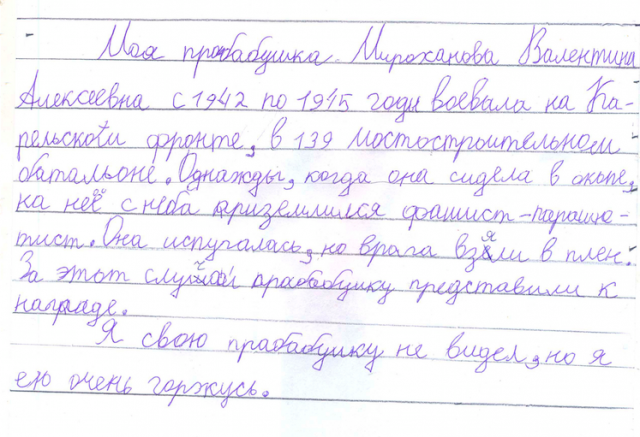 Моя прабабушка Мироханова Валентина
Алексеевна с 1942 по 1945 годы воевала на Ка-
рельском фронте, в 139 мостостроительном
батальоне. Однажды, когда она сидела в окопе,
на неё с неба приземлился фашист-парашю-
тист. Она испугалась, но врага взяли в плен.
За этот случай прабабушку представили к
награде.
Я свою прабабушку не видел, но я
ею очень горжусь.